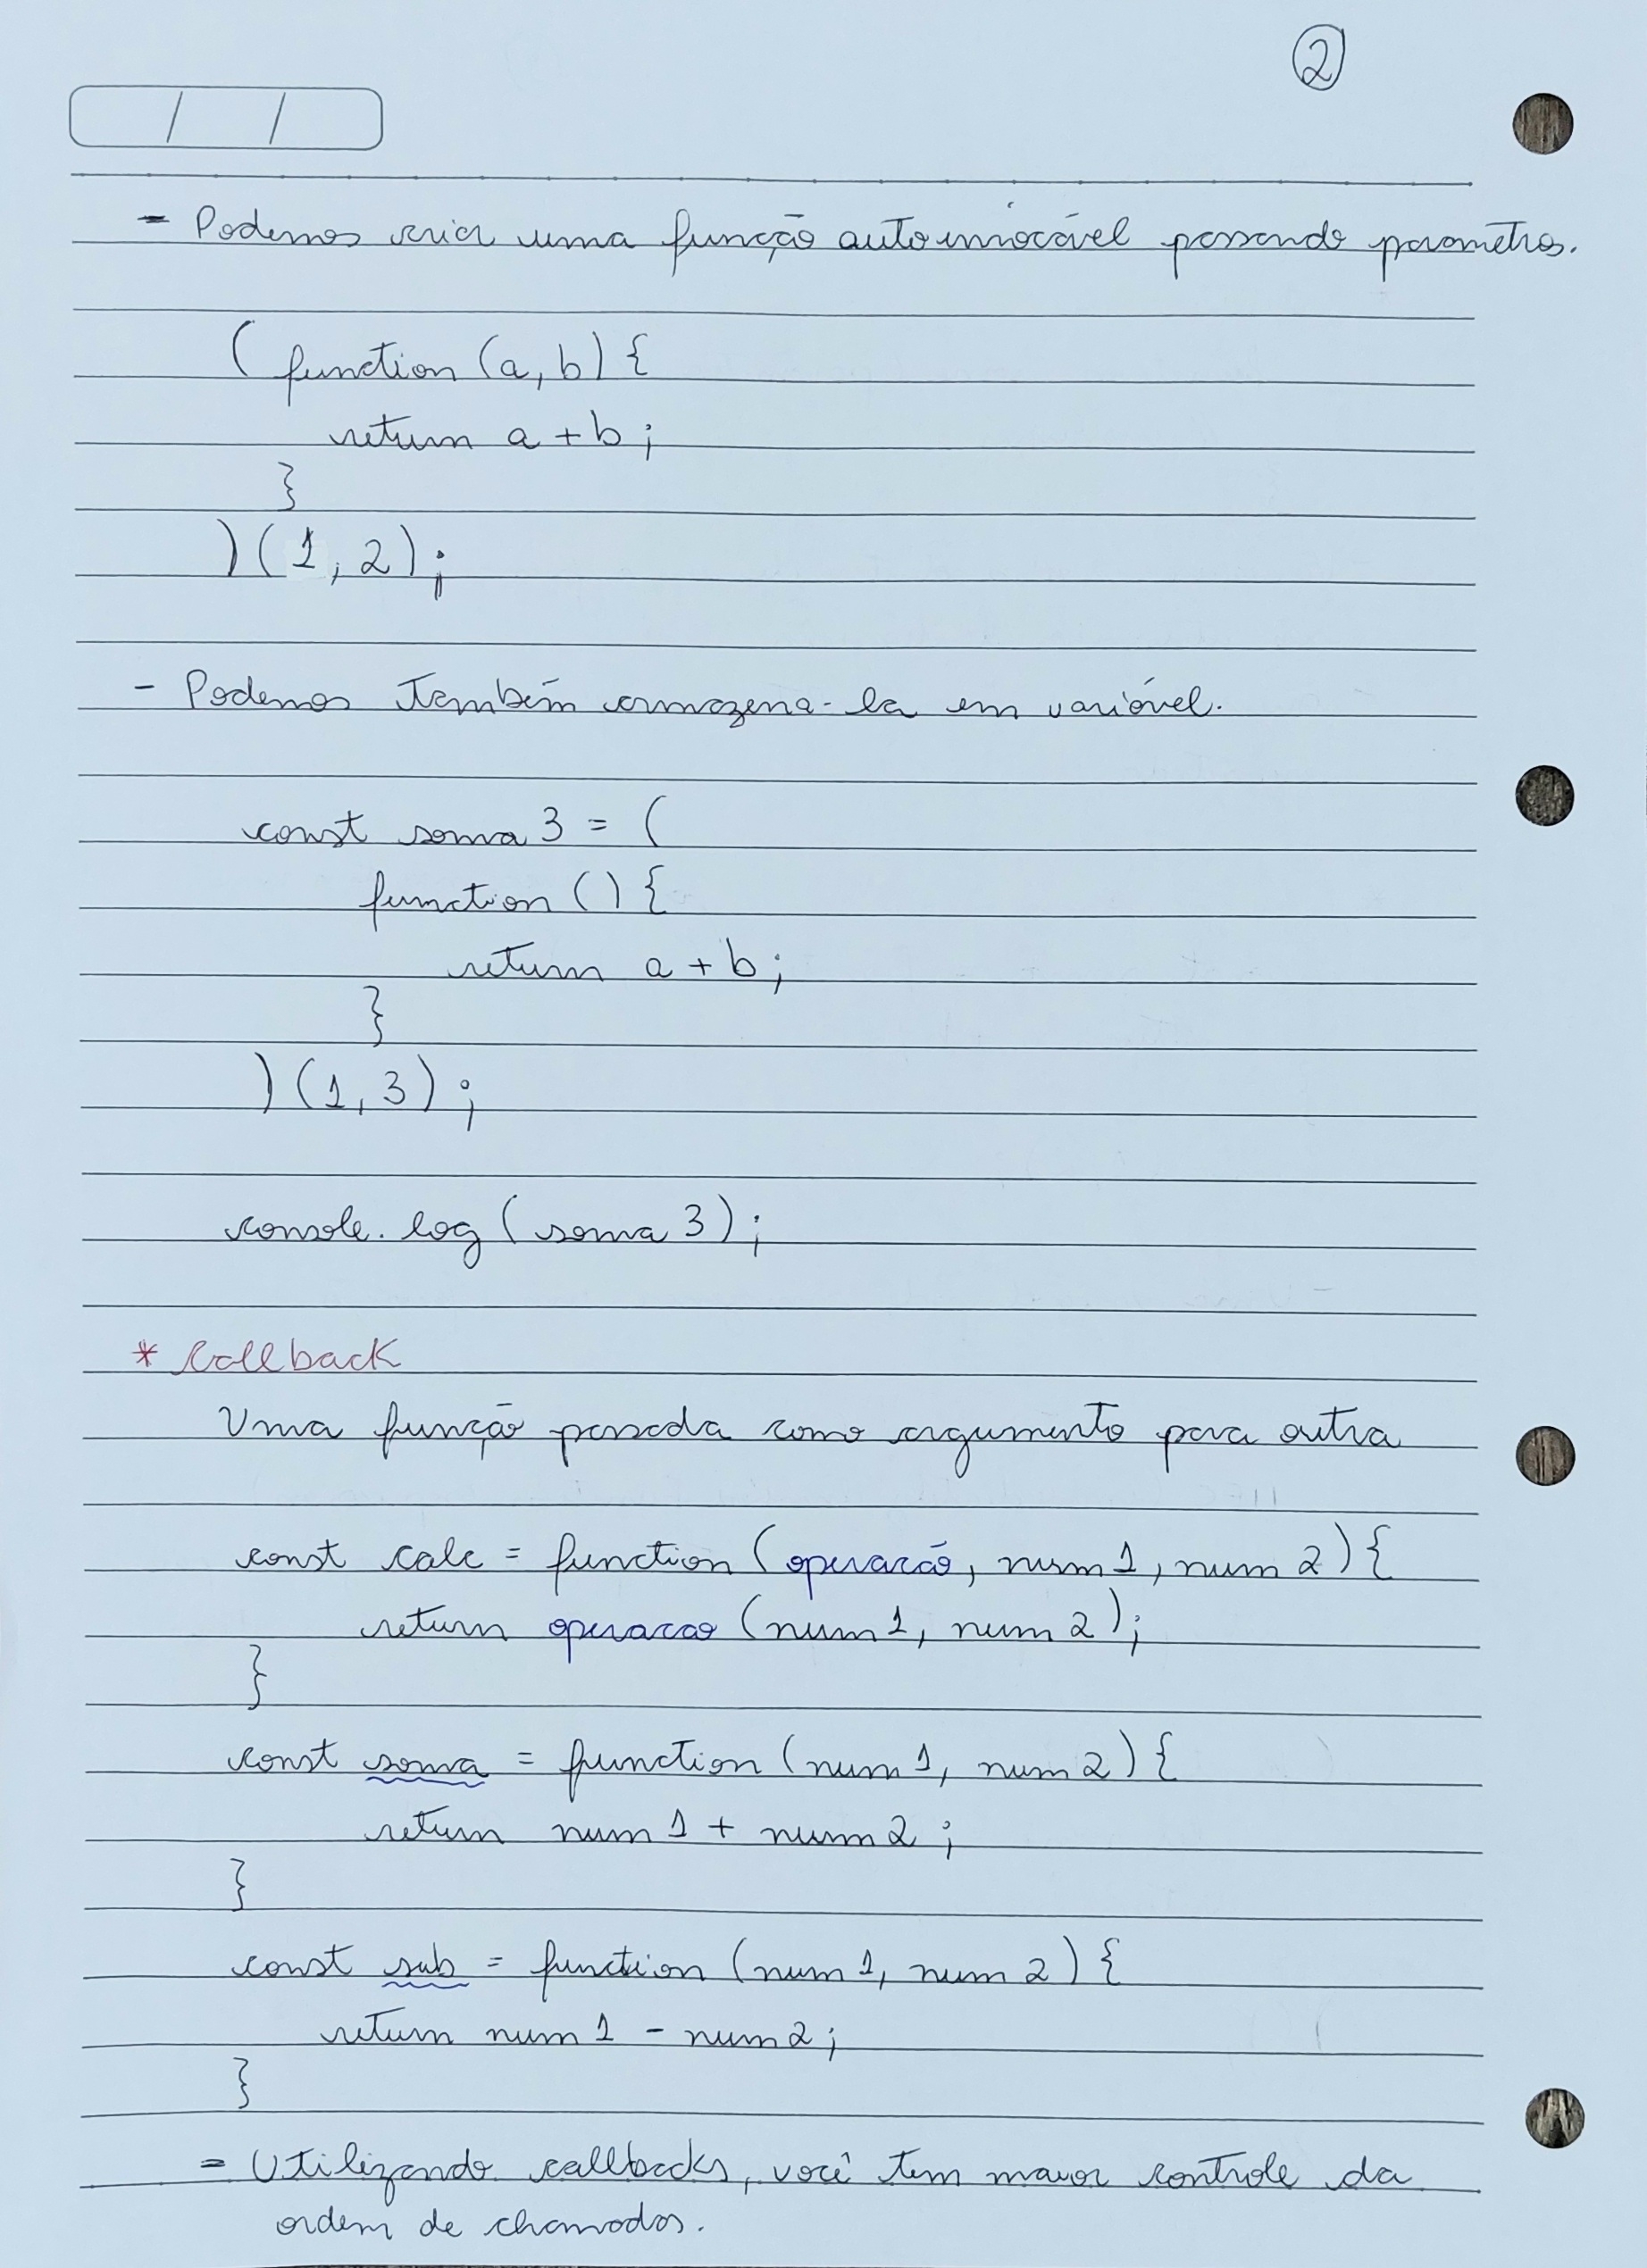 2
/ /
- Podemos criar uma função autoinvocável passando parametros.
( function (a, b) {
return a + b ;
}
) (1, 2) ;
- Podemos também armazena-la em variável.
const soma3 = (
function () {
return a + b ;
}
) (1, 3) ;
console.log (soma3) ;
* Callback
Uma função passada como argumento para outra
const calc = function (operacão, num1, num2) {
return operacao (num1, num2) ;
}
const soma = function (num1, num2) {
return num1 + num2 ;
}
const sub = function (num1, num2) {
return num1 - num2 ;
}
- Utilizando callbacks, você tem maior controle da
ordem de chamadas.